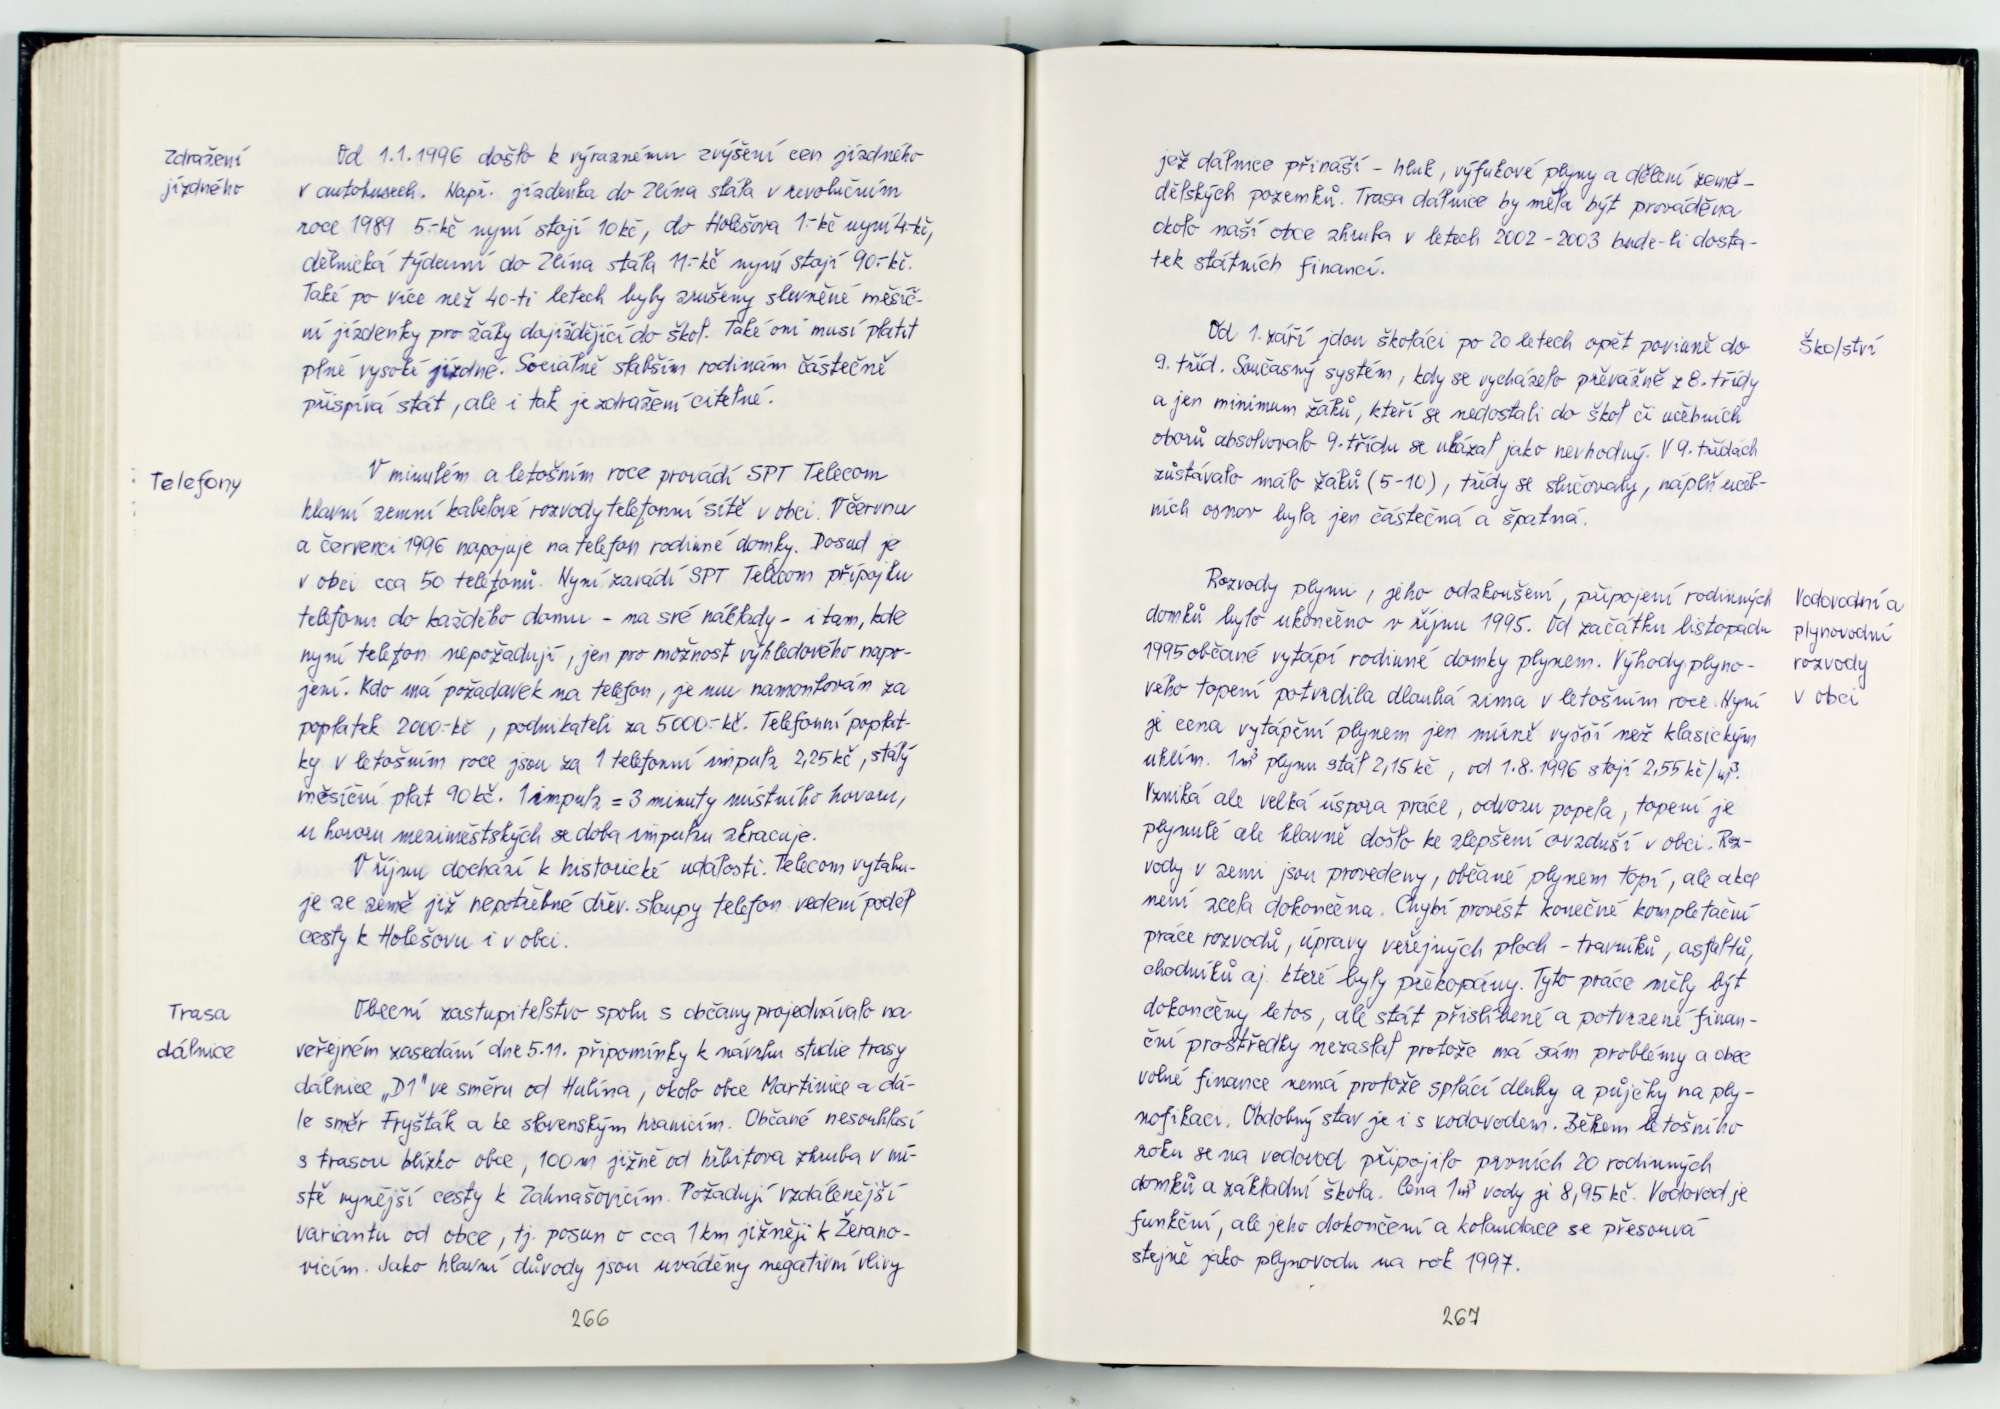 Zdražení
jízdného
Od 1.1.1996 došlo k výraznému zvýšení cen jízdného
v autobusech. Např. jízdenka do Zlína stála v revolučním
roce 1989 5.-kč nyní stojí 10kč, do Holešova 1.-kč nyní 4.-kč,
dělnická týdenní do Zlína stála 11.-kč nyní stojí 90.-kč.
Také po více než 40-ti letech byly zrušeny slevněné měsíč-
ní jízdenky pro žáky dojíždějící do škol. Také oni musí platit
plné vysoké jízdné. Sociálně slabším rodinám částečně
přispívá stát, ale i tak je zdražení citelné.
Telefony
V minulém a letošním roce provádí SPT Telecom
hlavní zemní kabelové rozvody telefonní sítě v obci. V červnu
a červenci 1996 napojuje na telefon rodinné domky. Dosud je
v obci cca 50 telefonů. Nyní zavádí SPT Telecom přípojku
telefonu do každého domu - na své náklady - i tam, kde
nyní telefon nepožadují, jen pro možnost výhledového napo-
jení. Kdo má požadavek na telefon, je mu namontován za
poplatek 2000.-kč, podnikateli za 5000.-kč. Telefonní poplat-
ky v letošním roce jsou za 1 telefonní impulz 2,25kč, stálý
měsíční plat 90kč. 1 impulz = 3 minuty místního hovoru,
u hovoru meziměstských se doba impulzu zkracuje.
V říjnu dochází k historické události. Telecom vytahu-
je ze země již nepotřebné dřev. sloupy telefon. vedení podél
cesty k Holešovu i v obci.
Trasa
dálnice
Obecní zastupitelstvo spolu s občany projednávalo na
veřejném zasedání dne 5.11. připomínky k návrhu studie trasy
dálnice „D1" ve směru od Hulína, okolo obce Martinice a dá-
le směr Fryšták a ke slovenským hranicím. Občané nesouhlasí
s trasou blízko obce, 100m jižně od hřbitova zhruba v mí-
stě nynější cesty k Zahnašovicím. Požadují vzdálenější
variantu od obce, tj. posun o cca 1km jižněji k Žerano-
vicím. Jako hlavní důvody jsou uváděny negativní vlivy
266
jež dálnice přináší - hluk, výfukové plyny a dělení země-
dělských pozemků. Trasa dálnice by měla být prováděna
okolo naší obce zhruba v letech 2002-2003 bude-li dosta-
tek státních financí.
Školství
Od 1. září jdou školáci po 20 letech opět povinně do
9. tříd. Současný systém, kdy se vycházelo převážně z 8. třídy
a jen minimum žáků, kteří se nedostali do škol či učebních
oborů absolvovalo 9. třídu se ukázal jako nevhodný. V 9. třídách
zůstávalo málo žáků (5-10), třídy se slučovaly, náplň učeb-
ních osnov byla jen částečná a špatná.
Vodovodní a
plynovodní
rozvody
v obci
Rozvody plynu, jeho odzkoušení, připojení rodinných
domků bylo ukončeno v říjnu 1995. Od začátku listopadu
1995 občané vytápí rodinné domky plynem. Výhody plyno-
vého topení potvrdila dlouhá zima v letošním roce. Nyní
je cena vytápění plynem jen mírně vyšší než klasickým
uhlím. 1m³ plynu stál 2,15kč, od 1.8.1996 stojí 2,55kč/m³.
Vzniká ale velká úspora práce, odvozu popela, topení je
plynulé ale hlavně došlo ke zlepšení ovzduší v obci. Roz-
vody v zemi jsou provedeny, občané plynem topí, ale akce
není zcela dokončena. Chybí provést konečné kompletační
práce rozvodů, úpravy veřejných ploch - travníků, asfaltů,
chodníků aj. které byly překopány. Tyto práce měly být
dokončeny letos, ale stát přislíbené a potvrzené finan-
ční prostředky nezaslal protože má sám problémy a obec
volné finance nemá protože splácí dluhy a půjčky na ply-
nofikaci. Obdobný stav je i s vodovodem. Během letošního
roku se na vodovod připojilo prvních 20 rodinných
domků a základní škola. Cena 1m³ vody je 8,95kč. Vodovod je
funkční, ale jeho dokončení a kolaudace se přesouvá
stejně jako plynovodu na rok 1997.
267